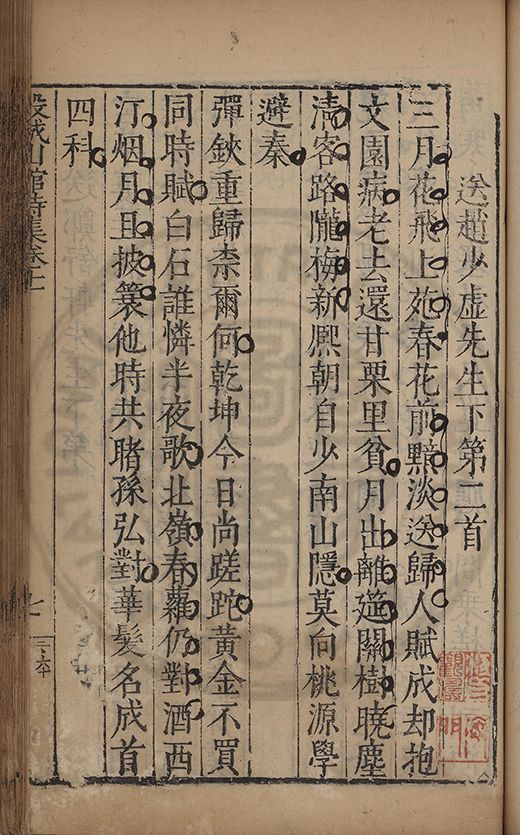 送趙少虛先生下第二首
三月花飛上苑春花前黯淡送歸人賦成却抱
文園病老去還甘栗里貧月出離筵關樹曉塵
清客路隴梅新熙朝自少南山隱莫向桃源學
避秦
彈鋏重歸柰爾何乾坤今日尚蹉跎黃金不買
同時賦白石誰憐半夜歌北嶺春蘿仍對酒西
汀烟月且披簑他時共睹孫弘對華髮名成首
四科
穀城山館詩集卷